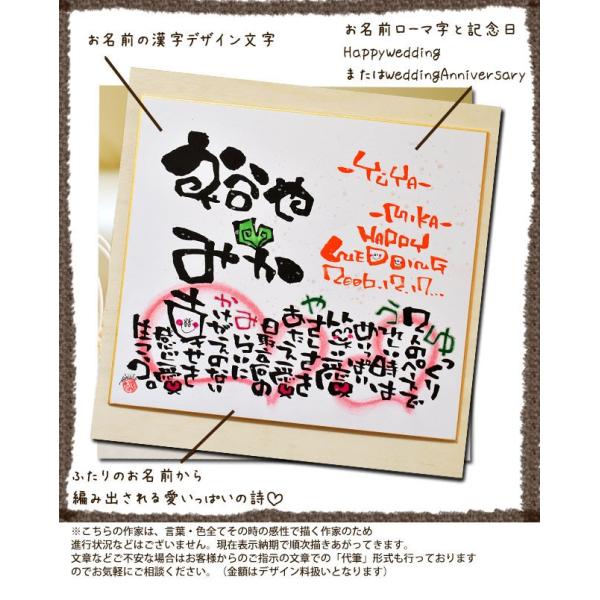 お名前の漢字デザイン文字
お名前ローマ字と記念日
Happywedding
またはweddingAnniversary
みか
-YUYA-
-MIKA-
HAPPY
WEDDING
2006.12.17...
ゆっくり
うれしい時は
めいっぱい
やさしさを
あたえ愛
みらいに
かけがえのない
幸せを
感じ愛
ふたりのお名前から
編み出される愛いっぱいの詩♡
※こちらの作家は、言葉・色全てその時の感性で描く作家のため
進行状況などはございません。現在表示納期で順次描きあがってきます。
文章などご不安な場合はお客様からのご指示の文章での「代筆」形式も行っております
のでお気軽にご相談ください。（金額はデザイン料扱いとなります）